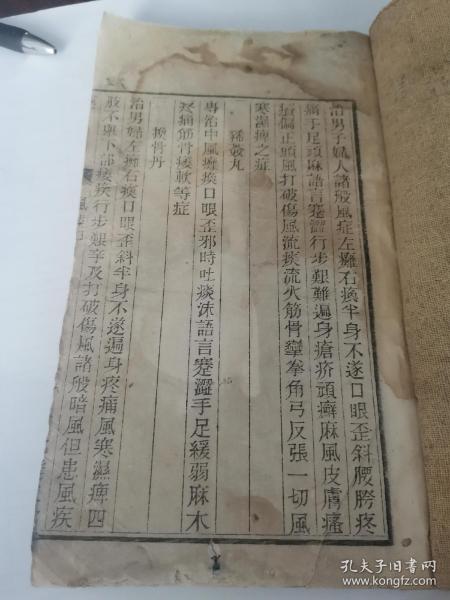 治男子婦人諸般風症左癱右瘓半身不遂口眼歪斜腰胯疼
痛手足頑麻語言蹇澀行步艱難遍身瘡疥頑癬麻風皮膚瘙
癢偏正頭風打破傷風流痰流火筋骨攣拳角弓反張一切風
寒濕痺之症
豨薟丸
專治中風癱瘓口眼歪邪時吐痰沫語言蹇澀手足緩弱麻木
疼痛筋骨痿軟等症
換骨丹
治男婦左癱右瘓口眼歪斜半身不遂遍身疼痛風寒濕痺四
肢不舉下部痿疾行步艱辛及打破傷風諸般暗風但患風疾
孔夫子旧书网
www.kongfz.com